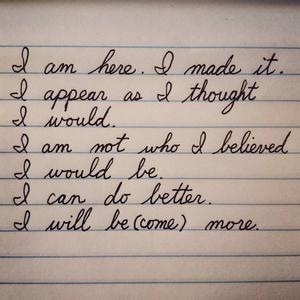 I am here. I made it.
I appear as I thought
I would.
I am not who I believed
I would be.
I can do better.
I will be(come) more.